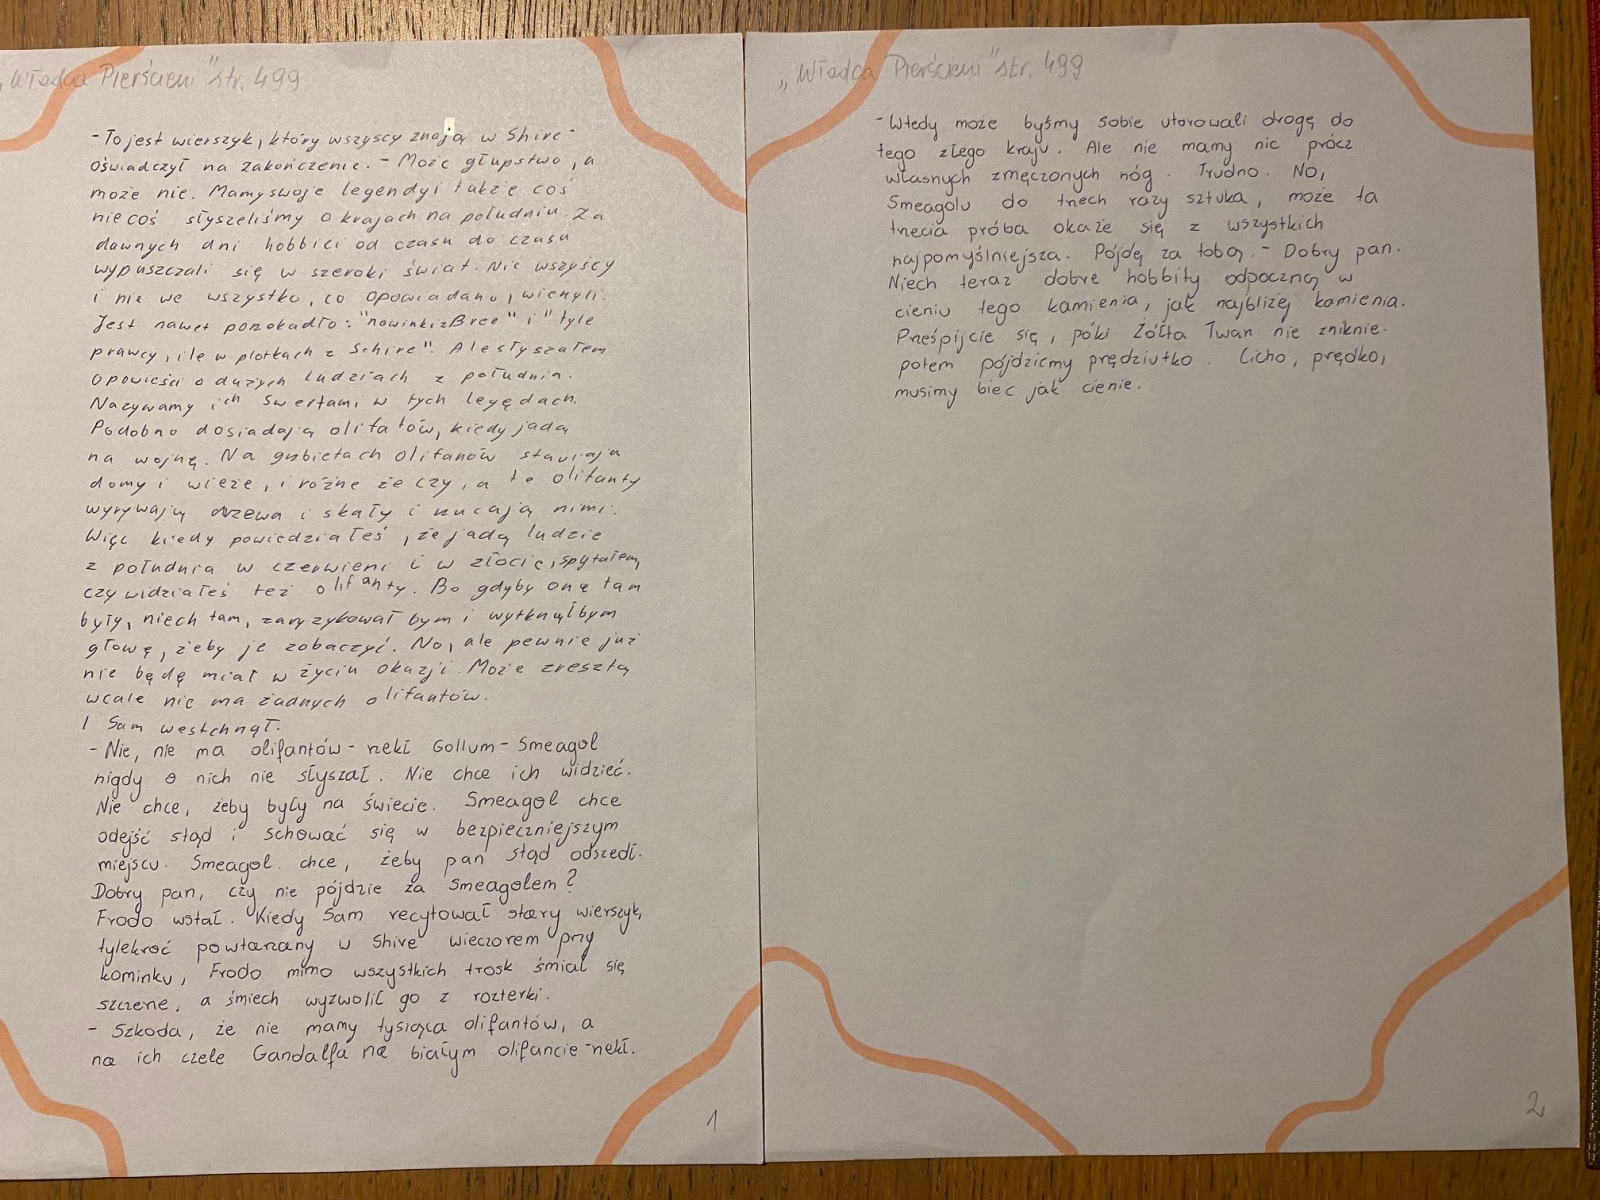 „Władca Pierścieni" str. 499
- To jest wierszyk, który wszyscy znają w Shire -
oświadczył na zakończenie. - Może głupstwo, a
może nie. Mamy swoje legendy i także coś
nie coś słyszeliśmy o krajach na południu. Za
dawnych dni hobbici od czasu do czasu
wypuszczali się w szeroki świat. Nie wszyscy
i nie we wszystko, co opowiadano, wierzyli.
Jest nawet porzekadło: "nowinki z Bree" i "tyle
prawcy, ile w plotkach z Schire". Ale słyszałem
opowieści o dużych ludziach z południa.
Nazywamy ich Swertami w tych legędach.
Podobno dosiadają olifatów, kiedy jadą
na wojnę. Na grzbietach olifanów stawiają
domy i wieże, i różne że czy, a te olifanty
wyrywają drzewa i skały i rzucają nimi.
Więc kiedy powiedziałeś, że jadą ludzie
z południa w czerwieni i w złocie, spytałem,
czy widziałeś też olifanty. Bo gdyby onę tam
były, niech tam, zaryzykował bym i wytknąłbym
głowę, żeby je zobaczyć. No, ale pewnie już
nie będę miał w życiu okazji. Może zresztą
wcale nie ma żadnych olifantów.
I Sam westchnął.
- Nie, nie ma olifantów - rzekł Gollum - Smeagol
nigdy o nich nie słyszał. Nie chce ich widzieć.
Nie chce, żeby były na świecie. Smeagol chce
odejść stąd i schować się w bezpieczniejszym
miejscu. Smeagol chce, żeby pan stąd odszedł.
Dobry pan, czy nie pójdzie za Smeagolem?
Frodo wstał. Kiedy Sam recytował stary wierszyk,
tylekroć powtarzany w Shire wieczorem przy
kominku, Frodo mimo wszystkich trosk śmiał się
szczerze, a śmiech wyzwolił go z rozterki.
- Szkoda, że nie mamy tysiąca olifantów, a
na ich czele Gandalfa na białym olifancie - rzekł.
1
„Władca Pierścieni" str. 499
- Wtedy może byśmy sobie utorowali drogę do
tego złego kraju. Ale nie mamy nic prócz
własnych zmęczonych nóg. Trudno. No,
Smeagolu do trzech razy sztuka, może ta
trzecia próba okaże się z wszystkich
najpomyślniejsza. Pójdę za tobą. - Dobry pan.
Niech teraz dobre hobbity odpoczną w
cieniu tego kamienia, jak najbliżej kamienia.
Prześpijcie się, póki Żółta Twarz nie zniknie.
potem pójdziemy prędziutko. Cicho, prędko,
musimy biec jak cienie.
2